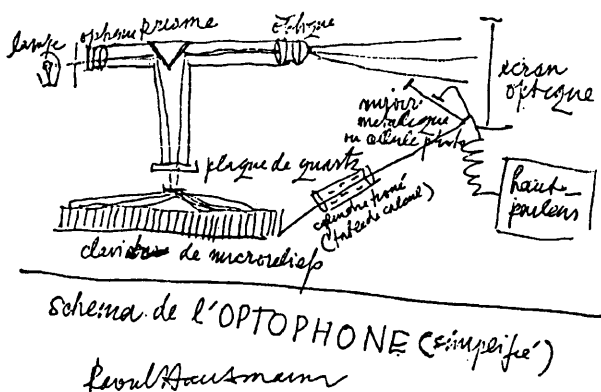 lampe
optique
prisme
optique
écran
optique
miroir
metalique
ou cellule photo
plaque de quartz
cylindre troué
(table de calcul)
haut-
parleurs
clavier de microreliefs
schema de l'OPTOPHONE (simplifié)
Raoul Hausmann